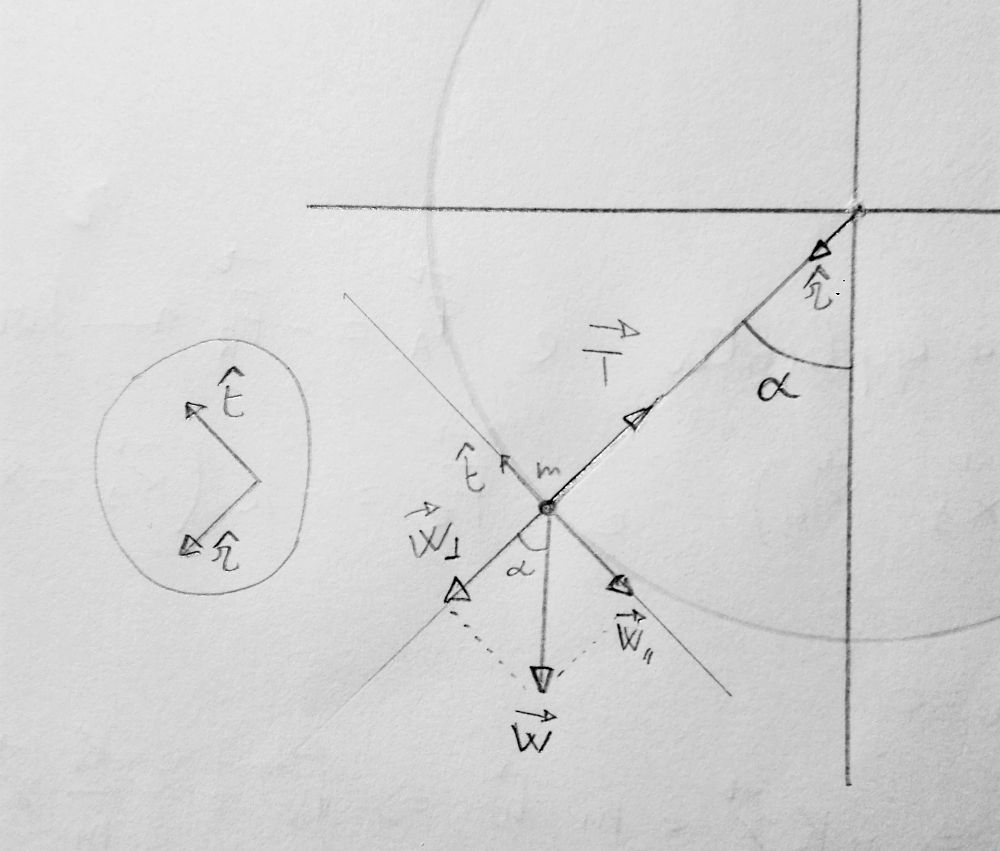 r̂
T⃗
α
t̂
r̂
t̂
m
W⃗⊥
α
W⃗∥
W⃗